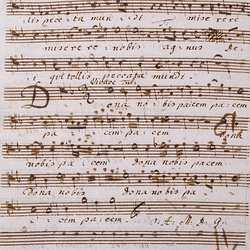 lis pecca mundi miserere
miserere re nobis agnus de
i qui tollis peccata mundi
Vivace Tutti
Dona nobis pacem pacem
pacem pacem dona
nobis pacem dona nobis pacem
Dona nobis dona nobis pa
cem pacem